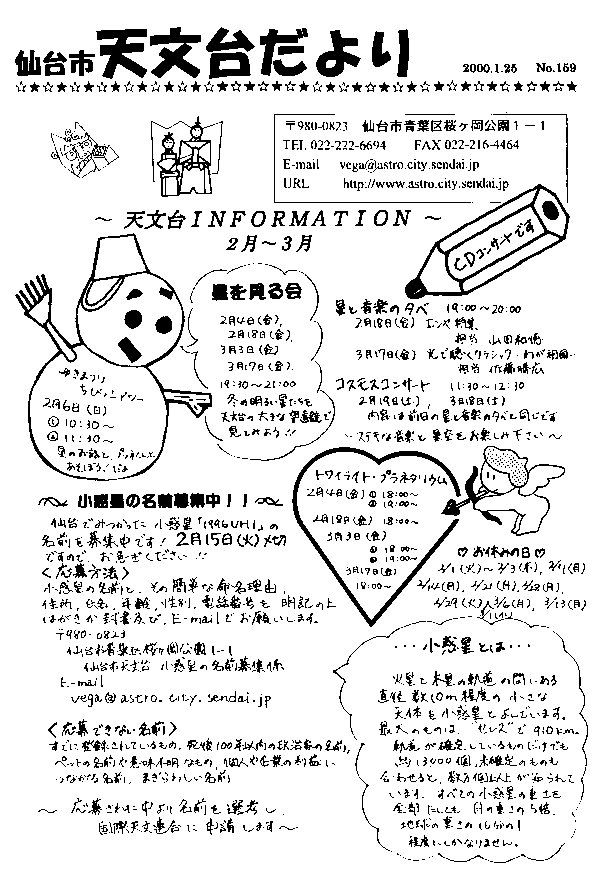 仙台市 天文台だより 2000.1.25 No.159
☆★☆★☆★☆★☆★☆★☆★☆★☆★☆★☆★☆★☆★☆★☆★☆★☆★☆★☆★☆
〒980-0823 仙台市青葉区桜ヶ岡公園1-1
TEL 022-222-6694 FAX 022-216-4464
E-mail vega@astro.city.sendai.jp
URL http://www.astro.city.sendai.jp
～ 天文台INFORMATION ～
2月～3月
CDコンサートです
星を見る会
2月4日(金),
2月18日(金),
3月3日(金)
3月17日(金).
19:30～21:00
冬の明るい星たちを
天文台の大きな望遠鏡で
見てみよう!!
ゆきまつり
ちびっこアワー
2月6日(日)
① 10:30～
② 11:30～
星のお話と
あそぼう!
星と音楽の夕べ 19:00～20:00
2月18日(金) エンヤ特集
担当 山田和
3月17日(金) 光で聴くクラシック・わが祖国
担当 佐藤
コスモスコンサート 11:30～12:30
2月19日(土), 3月18日(土)
内容は前日の星と音楽の夕べと同じです
～ステキな音楽と星空をお楽しみ下さい～
トワイライト・プラネタリウム
2月4日(金) ① 18:00～
② 19:00～
2月18日(金) 18:00～
3月3日(金)
① 18:00～
② 19:00～
3月17日(金)
18:00～
小惑星の名前募集中!!
仙台でみつかった小惑星「1996VH1」の
名前を募集中です! 2月15日(火)〆切
ですので、お急ぎください!!
<応募方法>
小惑星の名前と、その簡単な命名理由,
住所, 氏名, 年齢, 性別, 電話番号を 明記の上
はがきか封書及び, E-mailでお願いします。
〒980-0823
仙台市青葉区桜ヶ岡公園1-1
仙台市天文台 小惑星の名前募集係
E-mail
vega@astro.city.sendai.jp
<応募できない名前>
すでに登録されているもの, 死後100年以内の政治家の名前,
ペットの名前や意味不明なもの, 個人や企業の利益に
つながる名前, まぎらわしい名前
～ 応募された中より名前を選考し,
国際天文連合に申請します～
♡ お休みの日 ♡
2/1(火)～2/3(木), 2/7(月)
2/14(月), 2/21(月), 2/28(月),
2/29(火), 3/6(月), 3/13(月)
・・・小惑星とは・・・
火星と木星の軌道の間にある
直径数10m程度の小さな
天体を小惑星とよんでいます。
最大のものは, "セレス"で910km.
軌道が確定しているものだけでも
約13900個, 未確定のものも
合わせると, 数万個以上が知られて
います. すべての小惑星の重さを
全部たしても 月の重さの5倍,
地球の重さの16分の1
程度にしかなりません.